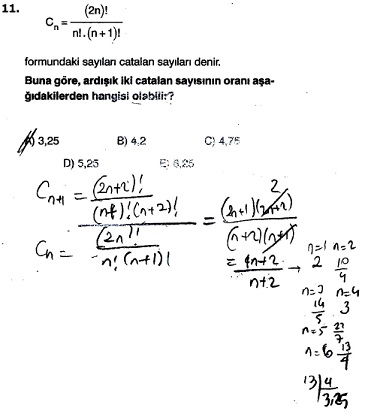 11.
C_n = (2n)! / n!.(n+1)!
formundaki sayıları catalan sayıları denir.
Buna göre, ardışık iki catalan sayısının oranı aşa-
ğıdakilerden hangisi olabilir?
A) 3,25 B) 4,2 C) 4,75
D) 5,25 E) 6,25
C_{n+1} = (2n+2)! / (n+1)! (n+2)!
C_n = (2n)! / n! (n+1)!
= (2n+1)(2n+2) / (n+2)(n+1)
2
= 4n+2 / n+2 →
n=1 n=2
2 10/4
n=3 n=4
14/5 3
n=5 22/7
n=6 13/4
13 | 4
3,25